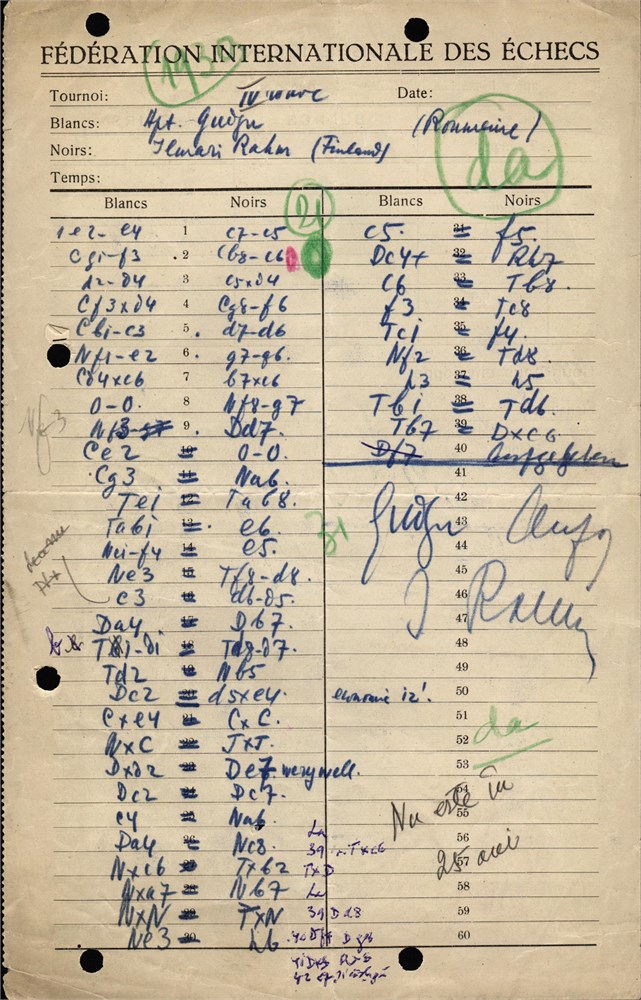 FÉDÉRATION INTERNATIONALE DES ÉCHECS
1930
Tournoi: Date:
Blancs: (Roumaine)
Noirs: Ilmari Rahm (Finland)
Temps:
da
Blancs Noirs Blancs Noirs
21
1 e2-e4 1 c7-c5
Cg1-f3 2 Cb8-c6
d2-d4 3 c5xd4
Cf3xd4 4 Cg8-f6
Cb1-c3 5 d7-d6
Nf1-e2 6 g7-g6
Cd4xc6 7 b7xc6
0-0 8 Nf8-g7
Nf3 9 Dd7
Ce2 10 0-0
Cg3 11 Na6
Te1 12 Tab8
Tab1 13 e6
Nc1-f4 14 e5
Ne3 15 Tf8-d8
c3 16 d6-d5
Da4 17 Db7
18 Td8-d7
Td2 19 Nb5
Dc2 20 d5xe4
Cxe4 21 CxC
NxC 22 TxT
Dxd2 23 De7 very well.
Dc2 24 Dc7
c4 25 Na6
Da4 26 Nc8
Nxc6 27 Txb2
Nxa7 28 Nb7
NxN 29 TxN
Ne3 30 h6
c5. 31 f5.
Dc4+ 32 Rh7
c6 33 Tb8
f3 34 Tc8
Tc1 35 f4
Nf2 36 Td8
h3 37 h5
Tb1 38 Td6
Tb7 39 Dxc6
Df7 40 aufgegeben
41
42
43
44
45
46
47
48
49
50
51
52
53
54
55
56
57
58
59
60
Nf3
31
da
Nu este în
25
La
39
TxD
La
39 Dd8